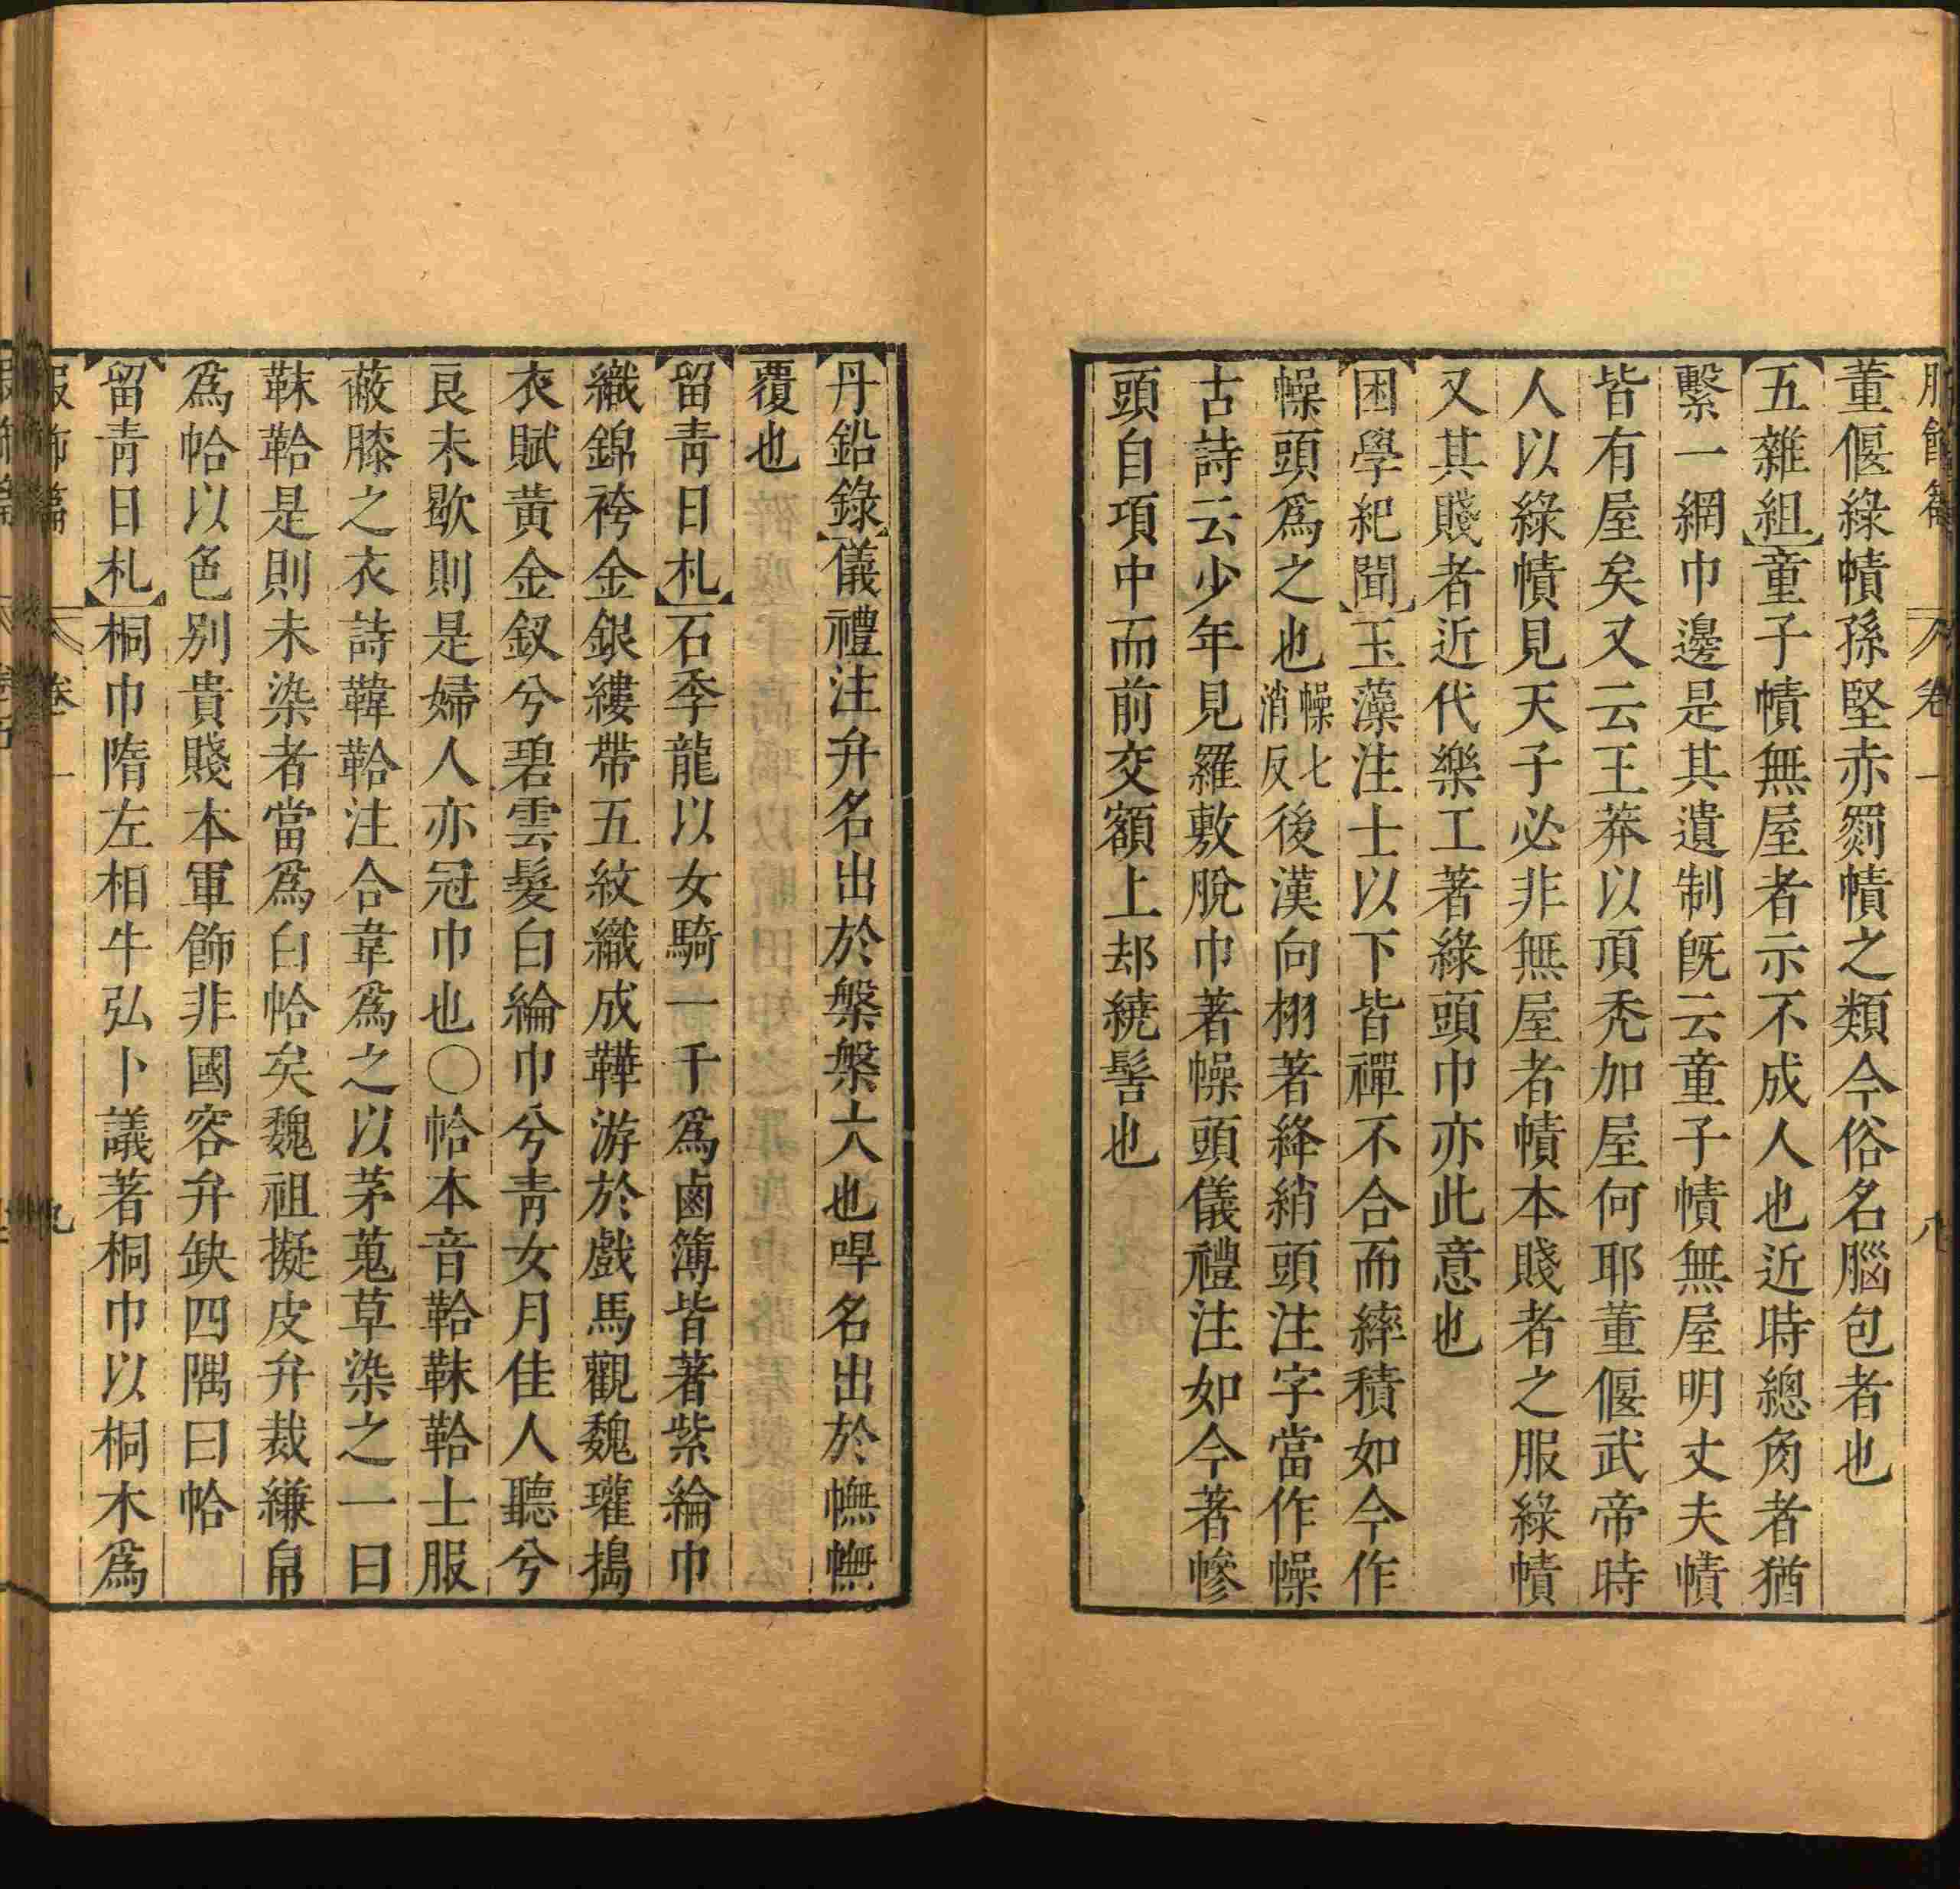 董偃綠幘孫堅赤罽幘之類今俗名腦包者也
五雜組童子幘無屋者示不成人也近時總角者猶
繫一網巾邊是其遺制旣云童子幘無屋明丈夫幘
皆有屋矣又云王莽以頂秃加屋何耶董偃武帝時
人以綠幘見天子必非無屋者幘本賤者之服綠幘
又其賤者近代樂工著綠頭巾亦此意也
困學紀聞玉藻注士以下皆禪不合而繂積如今作
幧頭爲之也幧七消反後漢向栩著絳綃頭注字當作幧
古詩云少年見羅敷脫巾著幧頭儀禮注如今著幓
頭自項中而前交額上却繞髻也
丹鉛錄儀禮注弁名出於槃槃大也哻名出於幠幠
覆也
留青日札石季龍以女騎一千爲鹵簿皆著紫綸巾
織錦袴金銀縷帶五紋織成鞾游於戲馬觀魏瓘搗
衣賦黃金釵兮碧雲髮白綸巾兮青女月佳人聽兮
良未歇則是婦人亦冠巾也〇帢本音鞈韎鞈士服
蔽膝之衣詩韠鞈注合韋爲之以茅蒐草染之一曰
韎鞈是則未染者當爲白帢矣魏祖擬皮弁裁縑帛
爲帢以色别貴賤本軍飾非國容弁缺四隅曰帢
留青日札桐巾隋左相牛弘卜議著桐巾以桐木爲
服飾篇 卷一 九